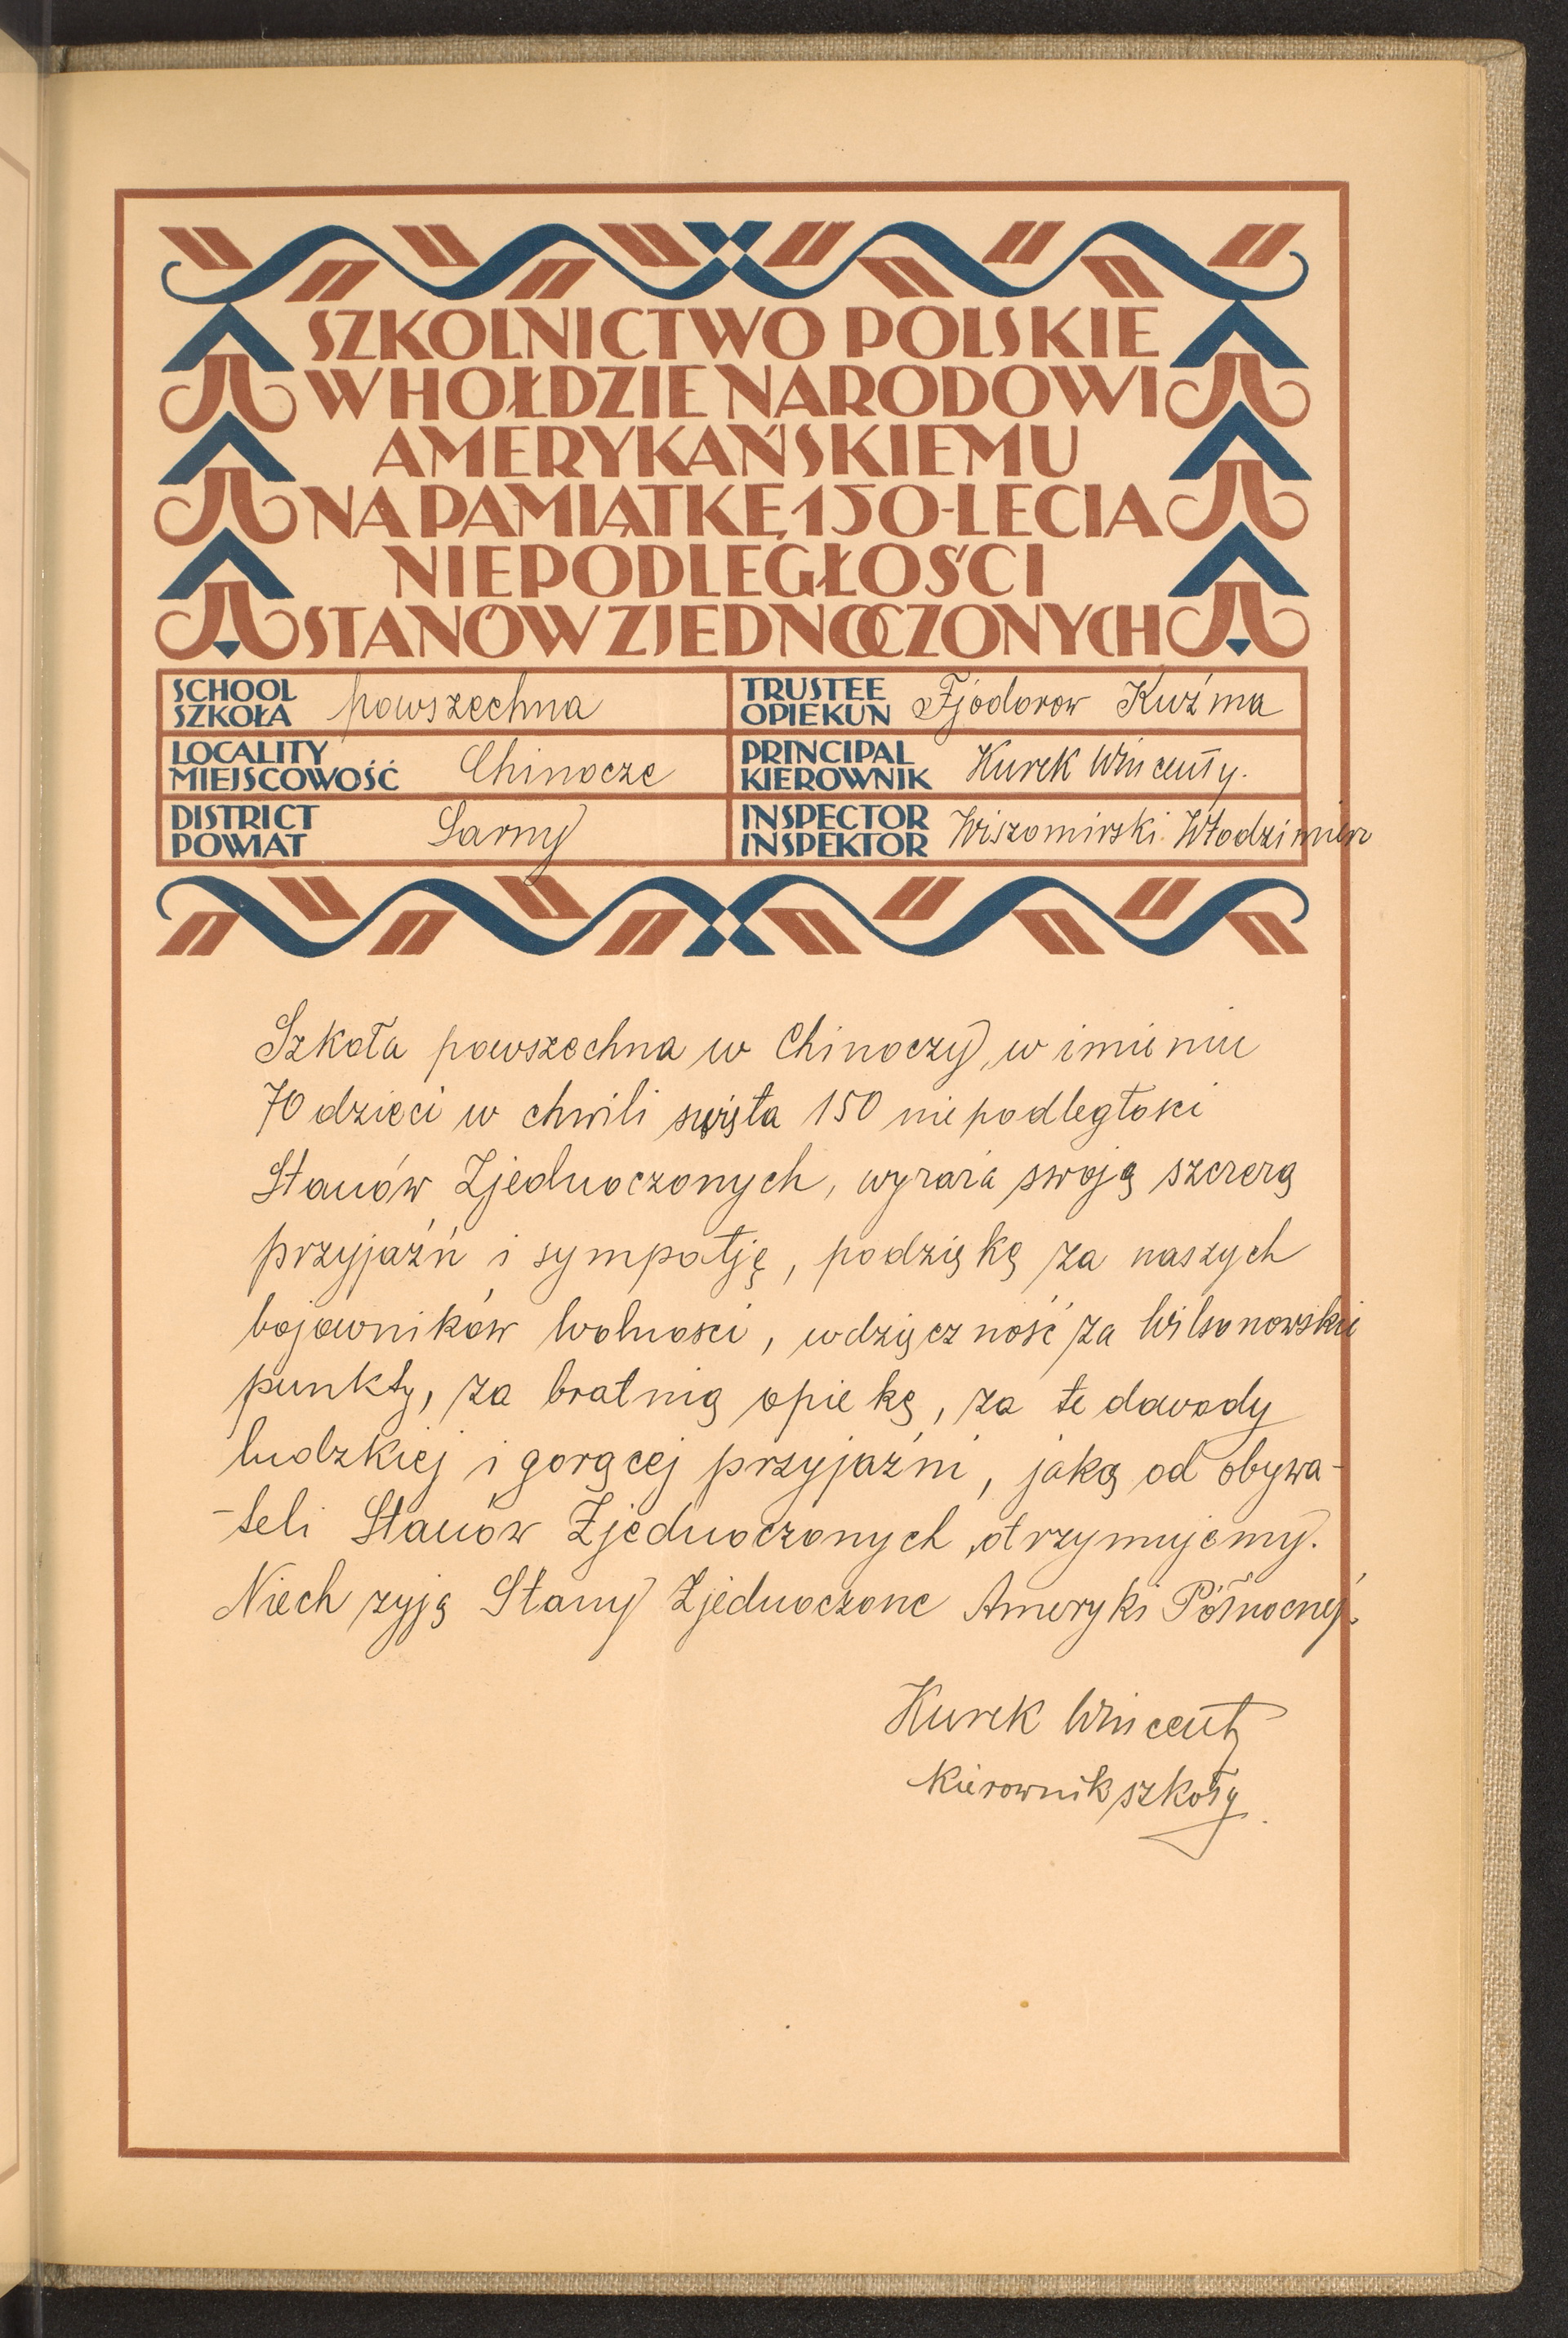 SZKOLNICTWO POLSKIE
W HOŁDZIE NARODOWI
AMERYKAŃSKIEMU
NA PAMIĄTKĘ 150-LECIA
NIEPODLEGŁOŚCI
STANÓW ZJEDNOCZONYCH
SCHOOL
SZKOŁA powszechna
TRUSTEE
OPIEKUN Fjodorow Kuźma
LOCALITY
MIEJSCOWOŚĆ Chinocze
PRINCIPAL
KIEROWNIK Kurek Wincenty.
DISTRICT
POWIAT Sarny
INSPECTOR
INSPEKTOR Wiszomirski Włodzimierz
Szkoła powszechna w Chinoczy, w imieniu
70 dzieci w chwili święta 150 niepodległosci
Stanów Zjednoczonych, wyraża swoją szczerą
przyjaźń i sympatję, podziękę za naszych
bojowników wolnosci, wdzięczność za Wilsonowskie
punkty, za bratnią opiekę, za te dowody
ludzkiej i gorącej przyjaźni, jaką od obywa-
-teli Stanów Zjednoczonych otrzymujemy.
Niech zyją Stany Zjednoczone Ameryki Północnej.
Kurek Wincenty
Kierownik szkoły.